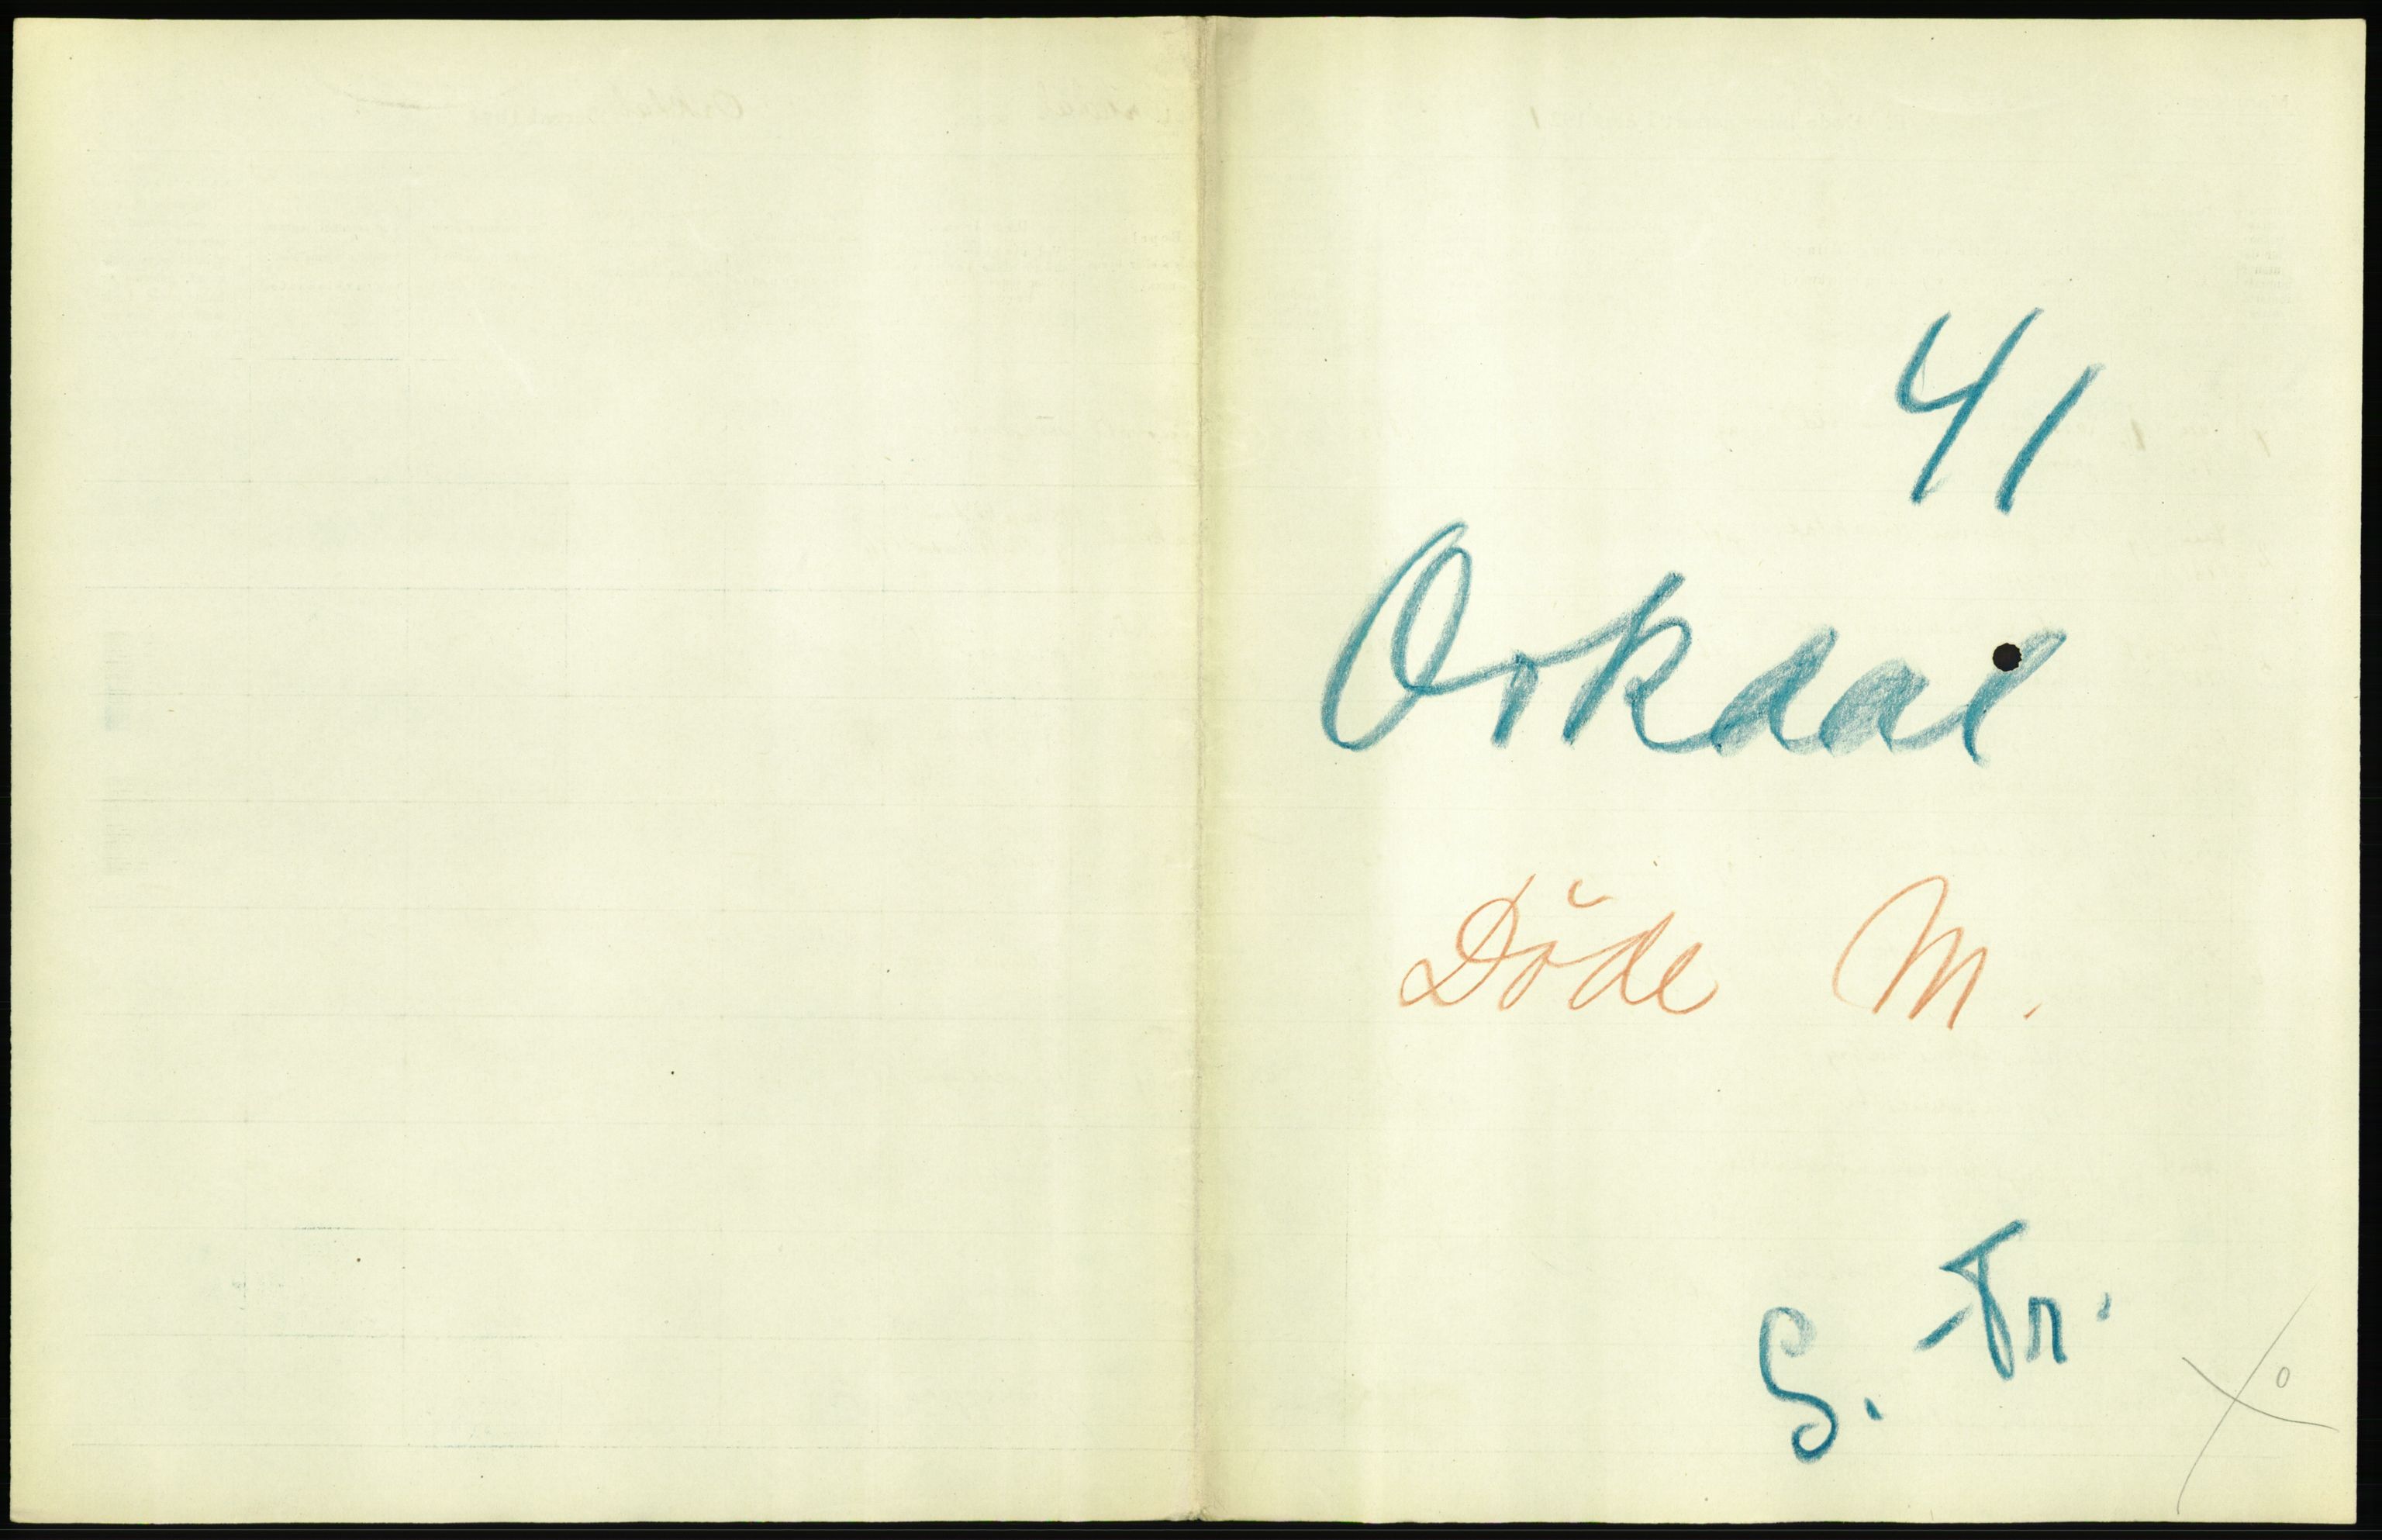 41
Orkdal
Döde M.
S. Tr.